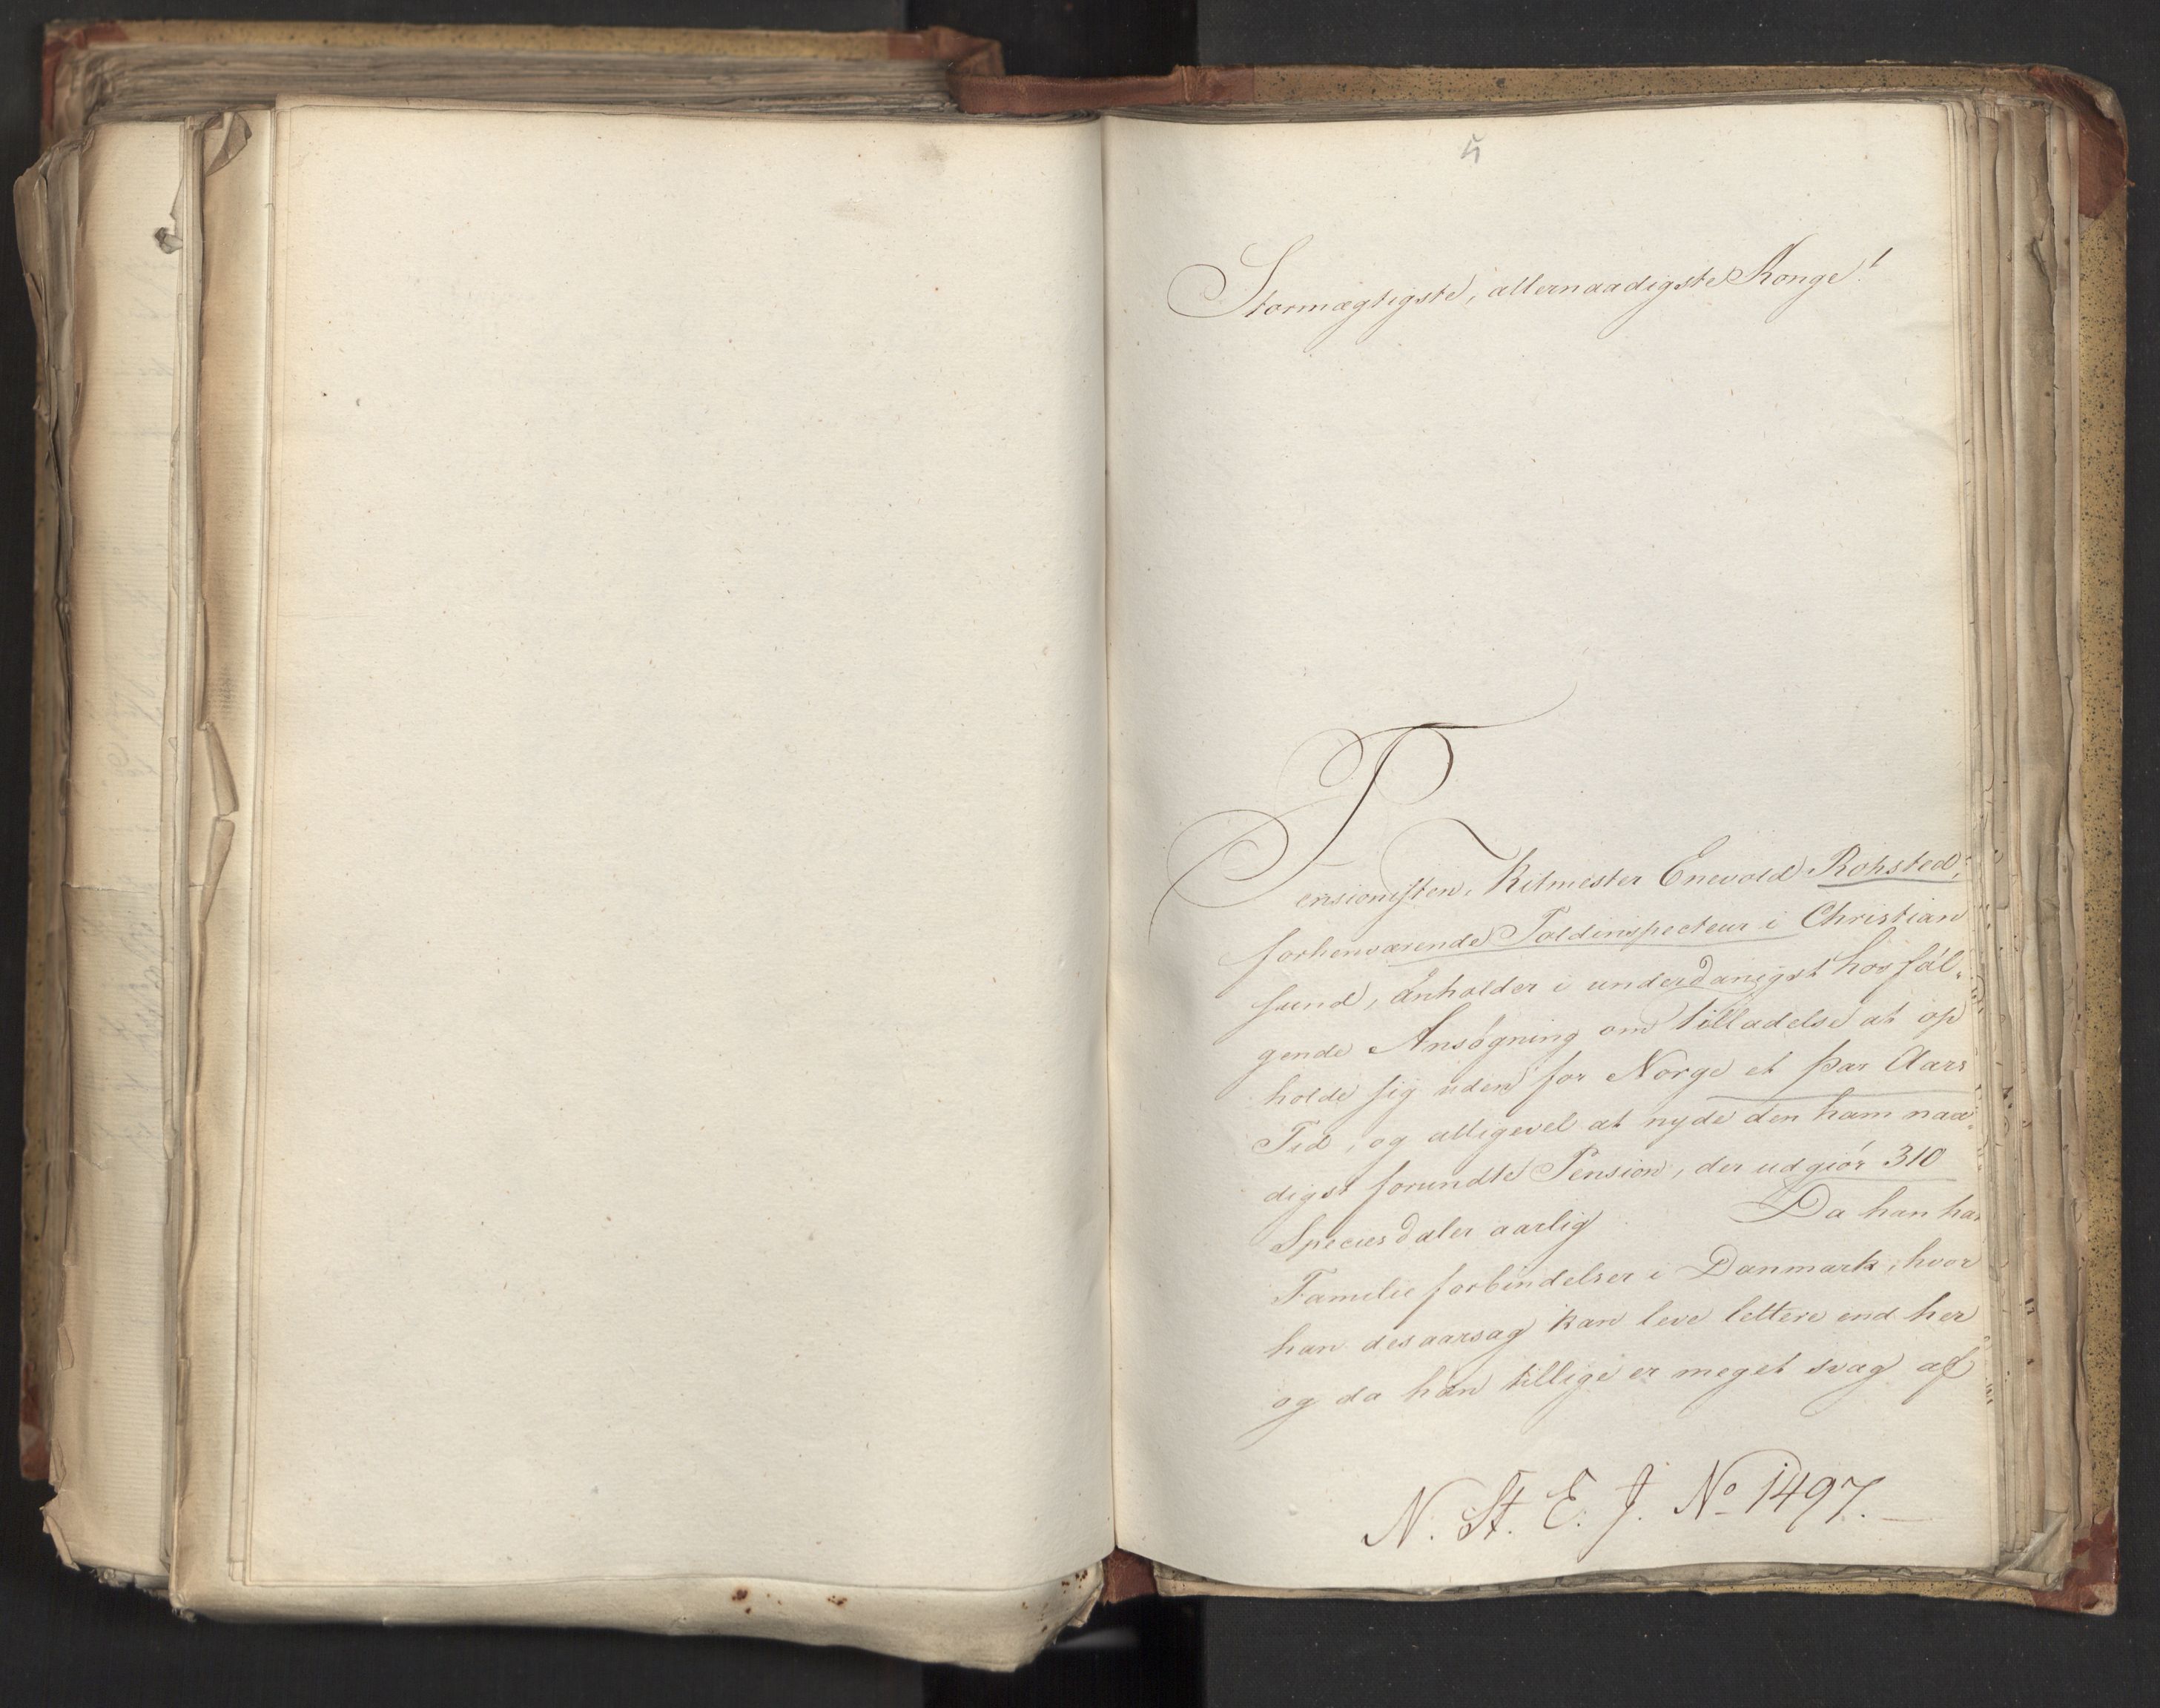 5
Stormægtigste, allernaadigste Konge!
Pensionisten, Ritmester Enevold Rohsted,
forhenværende Toldinspecteur i Christian
sund, anholder i underdanigst hosføl-
gende Ansøgning om Tilladelse at op
holde sig uden for Norge et Par Aars
Tid, og alligevel at nyde den ham naa-
digst forundte Pension, der udgiör 310
Speciesdaler aarlig Da han har
Familieforbindelser i Danmark, hvor
han desaarsag kan leve lettere end her
og da han tillige er meget svag af
N. St. E. J. No 1497.